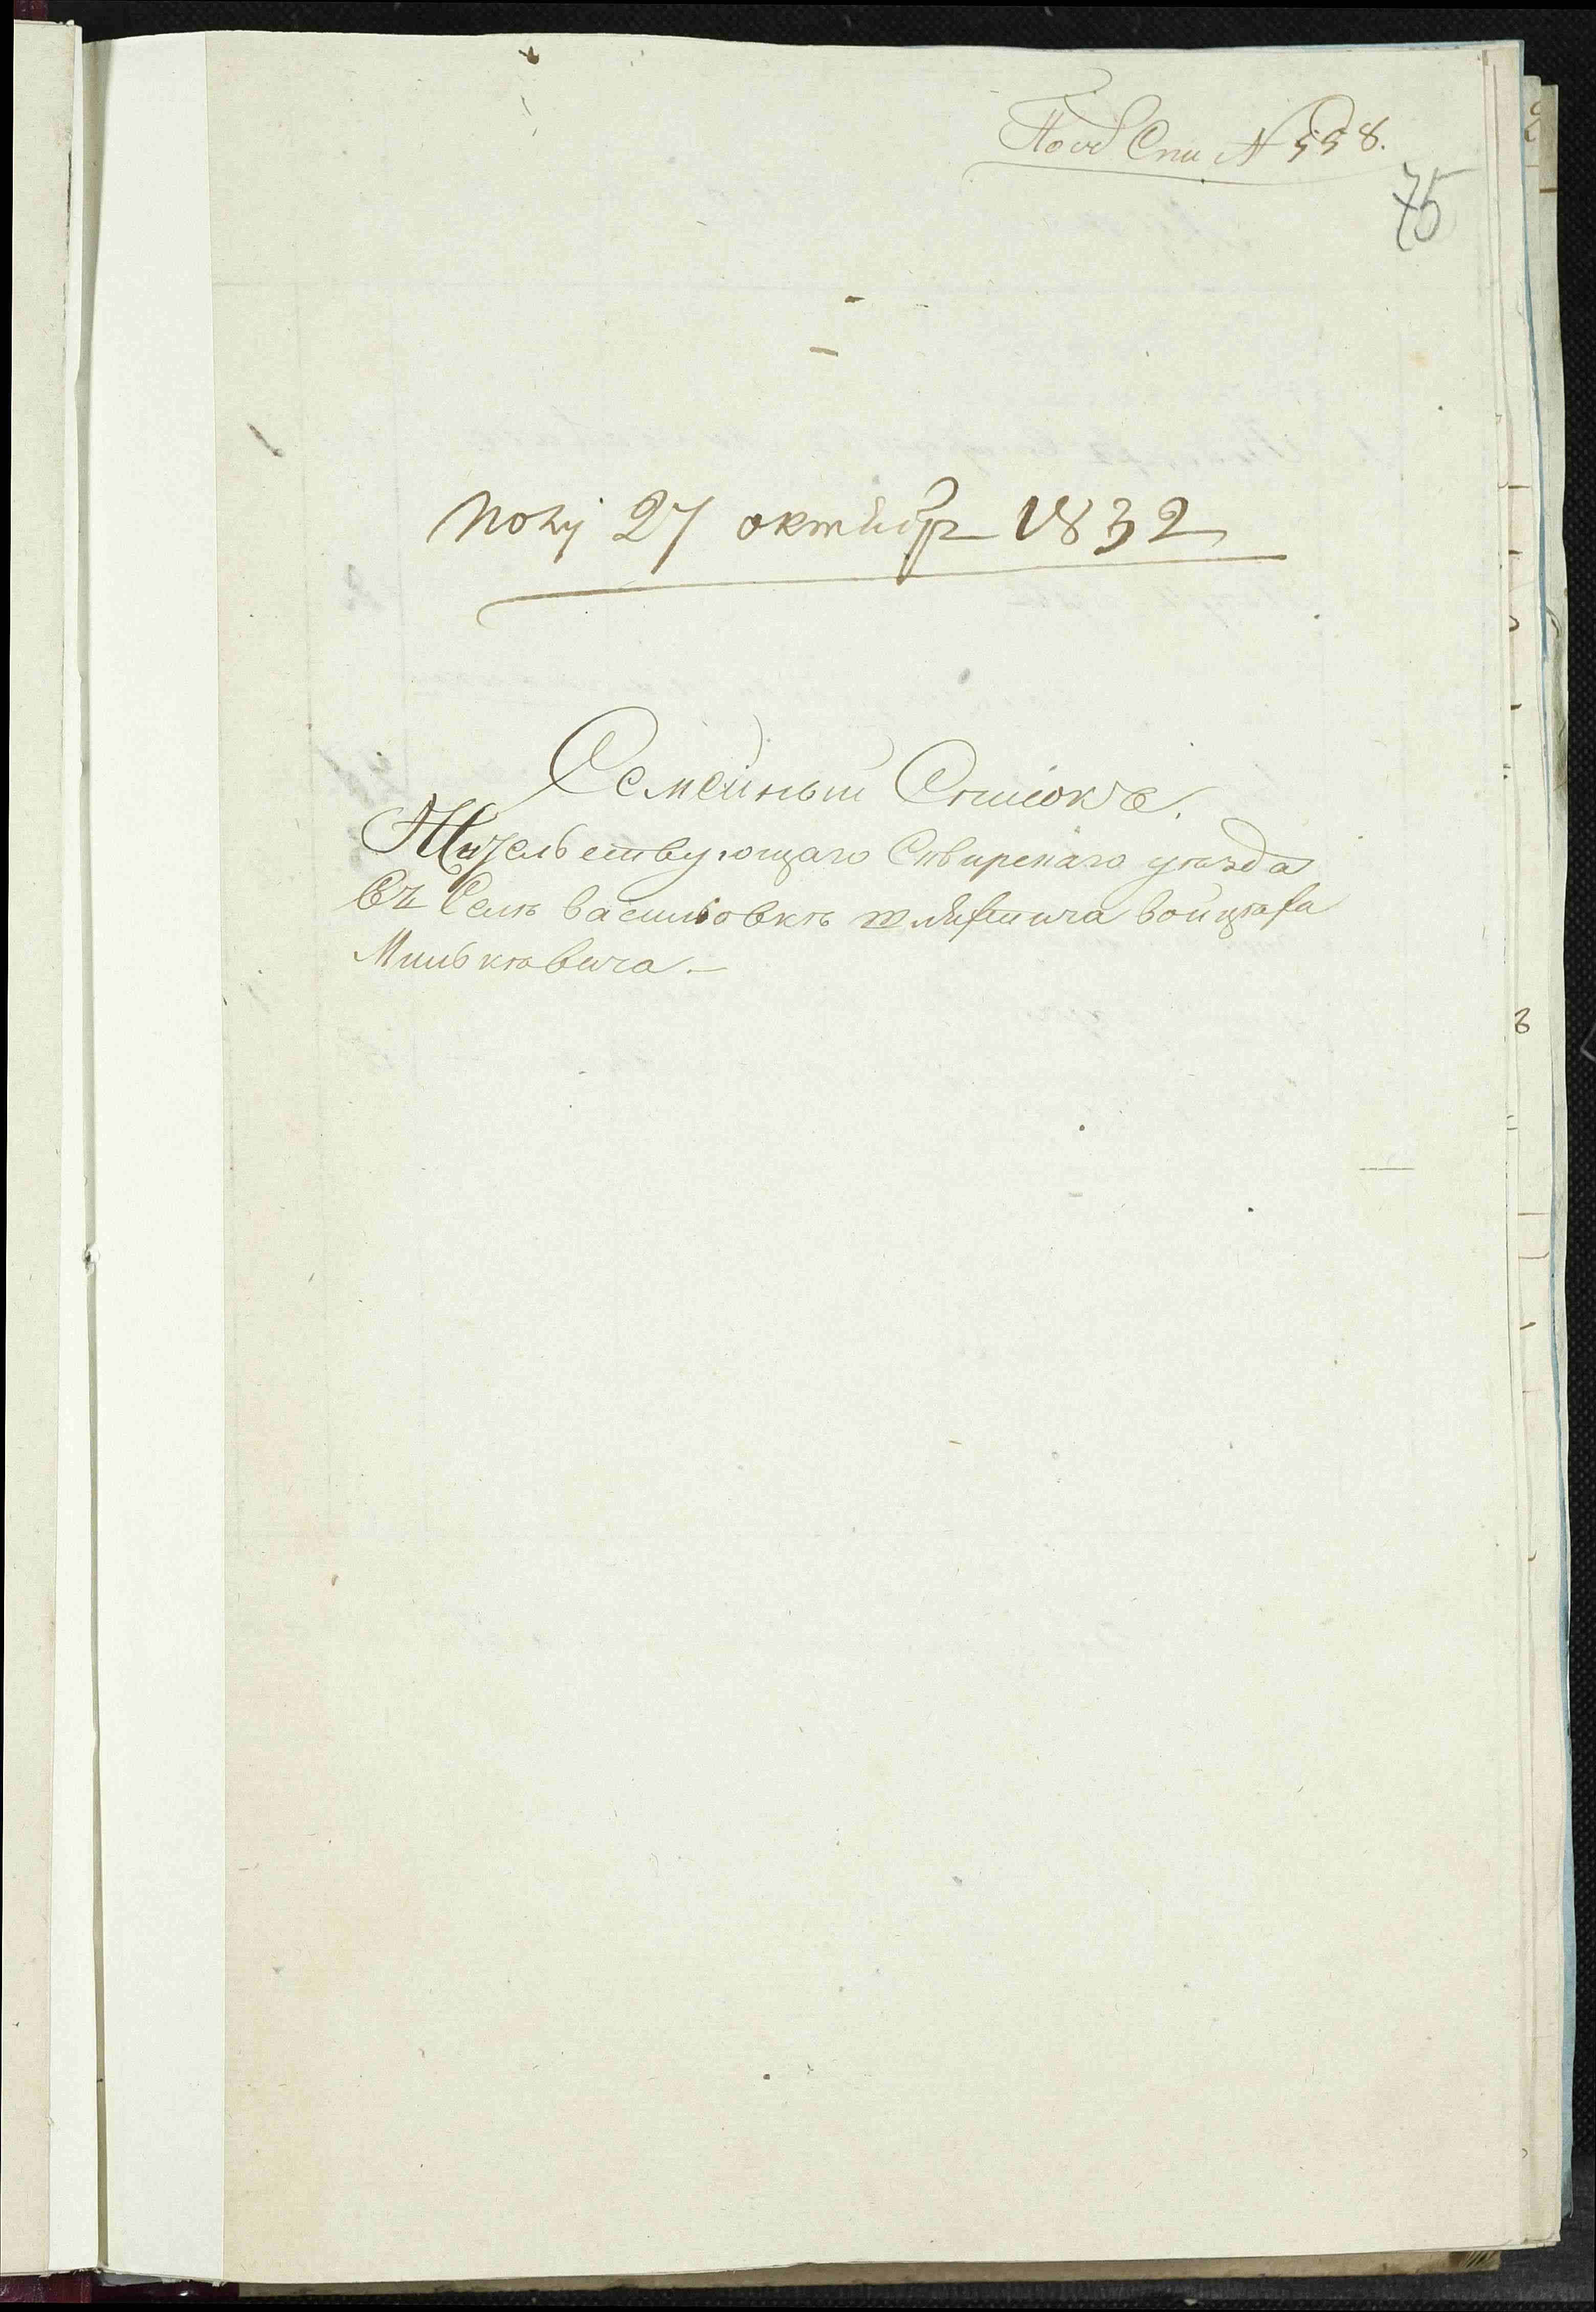 Спи № 558.
75
Полу 27 октября 1832
Семейный Списокъ.
Жительствующаго Сквирскаго уѣзда
Въ Селѣ Васильовкѣ шляхтича Войцѣха
Мильκѣвича.—